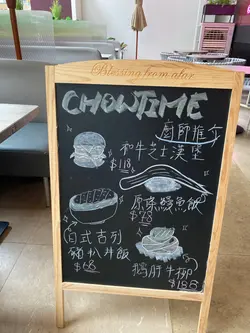 Blessing from afar
CHOWTIME
廚師推介
和牛芝士漢堡
$118
原條鰻魚飯
日式吉列
豬扒丼飯
$68
鵝肝牛柳
$188